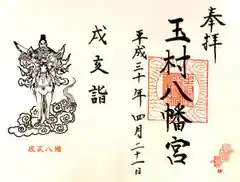 奉拝
玉村八幡宮
平成三十年四月二十一日
戌亥詣
戌亥八幡